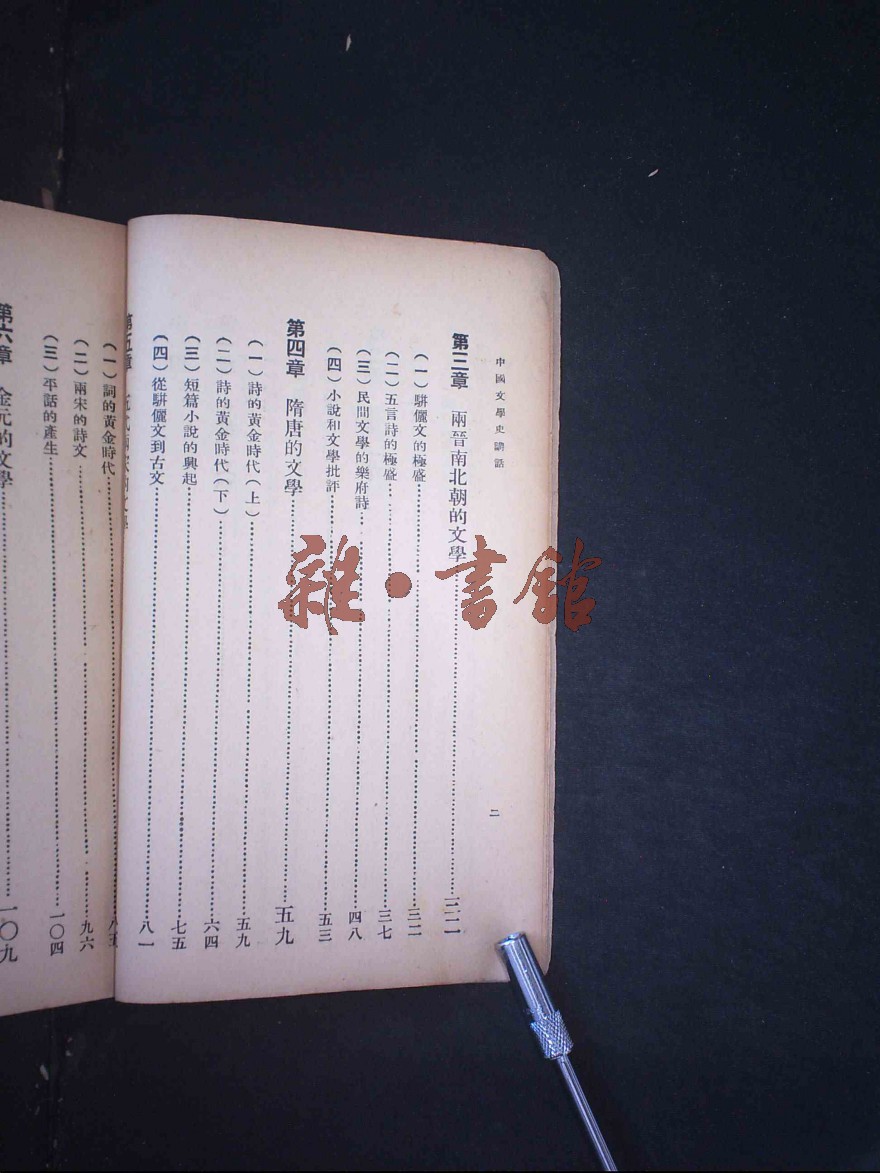 中國文學史講話
二
第三章 兩晉南北朝的文學……三二
(一)騈儷文的極盛……三二
(二)五言詩的極盛……三七
(三)民間文學的樂府詩……四八
(四)小說和文學批評……五三
第四章 隋唐的文學……五九
(一)詩的黃金時代(上)……五九
(二)詩的黃金時代(下)……六四
(三)短篇小說的興起……七五
(四)從騈儷文到古文……八一
第五章
(一)詞的黃金時代……八五
(二)兩宋的詩文……九六
(三)平話的產生……一〇四
第六章 金元的文學……一〇九
雜·書館